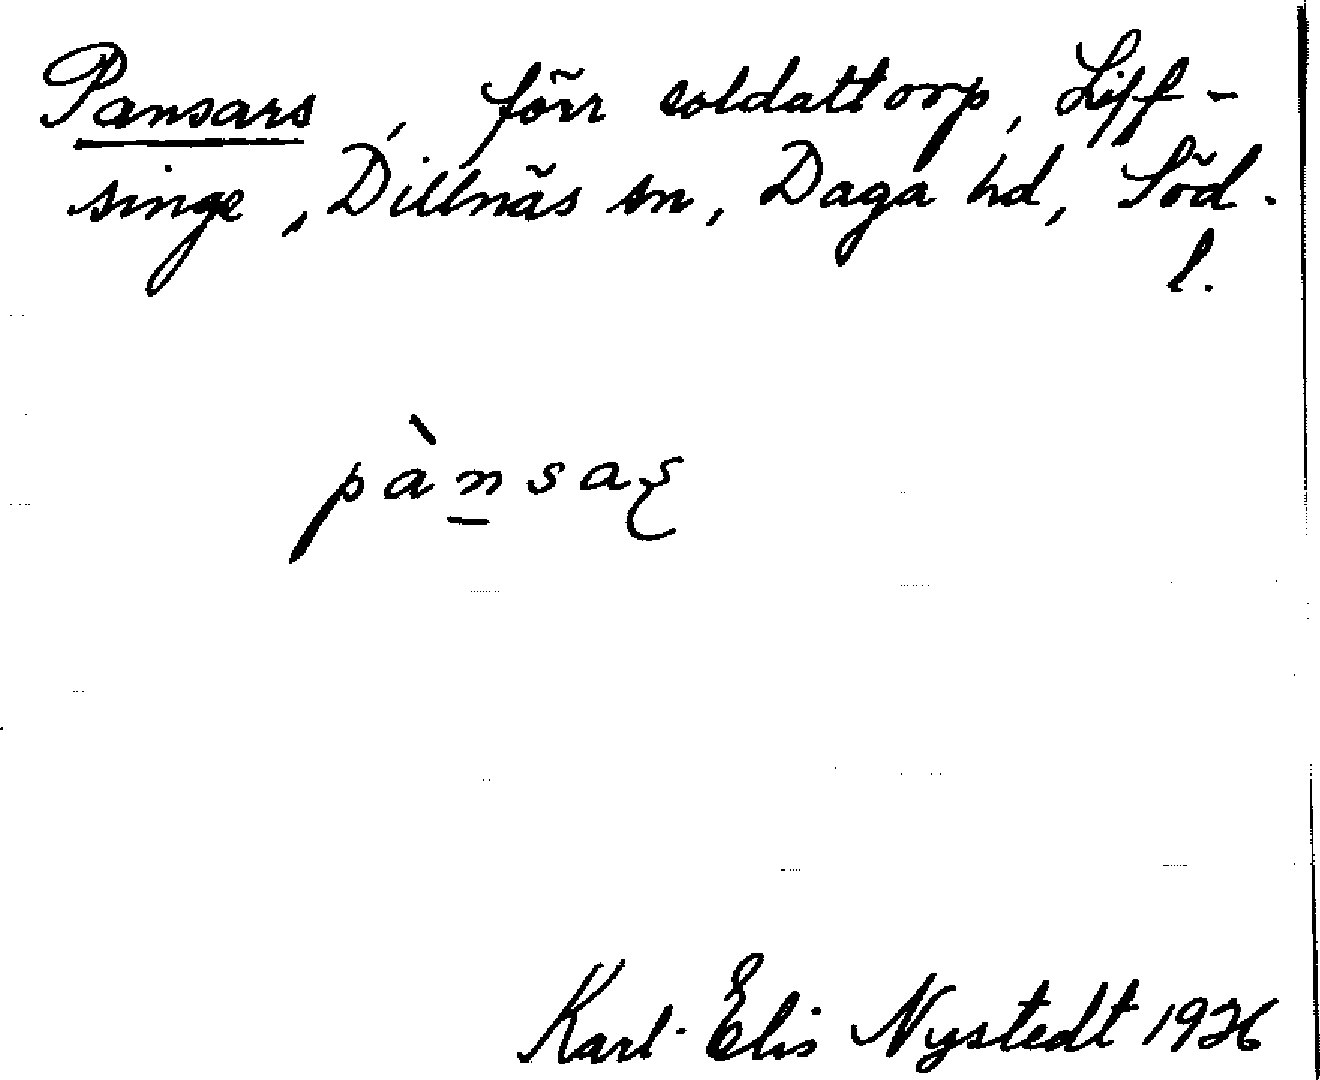 Pansars, förr soldattorp, Liff-
singe, Dillnäs sn, Daga hd, Söd.
l.
pàn̠saʂ
Karl-Elis Nystedt 1926